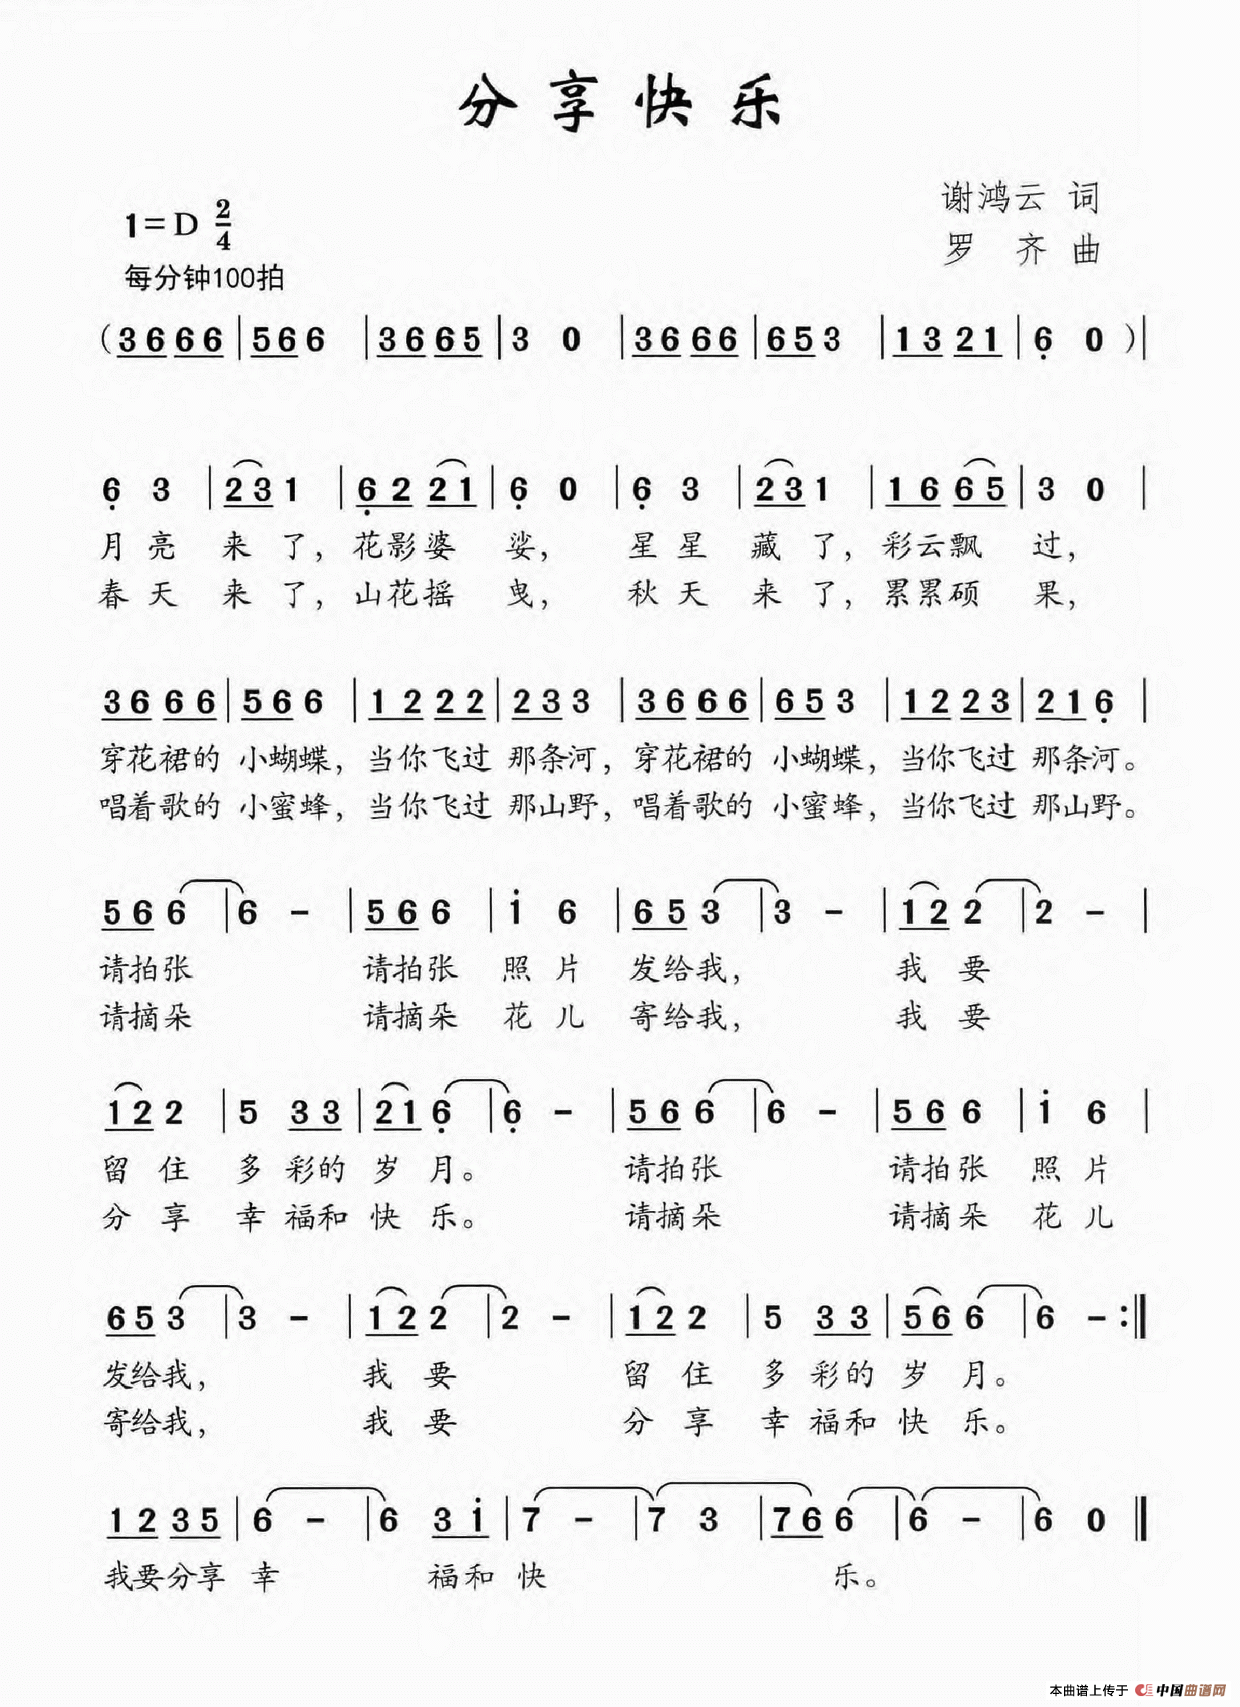 分享快乐
谢鸿云 词
1=D 2/4
罗 齐 曲
每分钟100拍
(3666|566 |3665|3 0 |3666|653 |1321|6̣ 0 )|
6̣ 3 |231 |6̣221|6̣ 0 |6̣ 3 |231 |1665|3 0 |
月亮 来了,花影婆 娑, 星星 藏了,彩云飘 过,
春天 来了,山花摇 曳, 秋天 来了,累累硕 果,
3666|566 |1222|233 |3666|653 |1223|216̣ |
穿花裙的 小蝴蝶,当你飞过 那条河,穿花裙的 小蝴蝶,当你飞过 那条河。
唱着歌的 小蜜蜂,当你飞过 那山野,唱着歌的 小蜜蜂,当你飞过 那山野。
566 |6 - |566 |i 6 |653 |3 - |122 |2 - |
请拍张 请拍张 照片 发给我, 我要
请摘朵 请摘朵 花儿 寄给我, 我要
122 |5 33|216̣ |6̣ - |566 |6 - |566 |i 6 |
留住 多彩的 岁月。 请拍张 请拍张 照片
分享 幸福和 快乐。 请摘朵 请摘朵 花儿
653 |3 - |122 |2 - |122 |5 33|566 |6 -:‖
发给我, 我要 留住 多彩的 岁月。
寄给我, 我要 分享 幸福和 快乐。
1235|6 - |6 3i|7 - |7 3 |766 |6 - |6 0 ‖
我要分享 幸 福和 快 乐。
本曲谱上传于 中国曲谱网